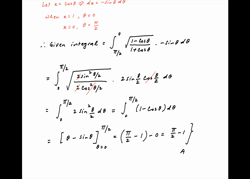 Let x = cosθ ⇒ dx = -sinθ dθ
when x=1, θ=0
x=0, θ=π/2
∴ Given integral = ∫_{π/2}^{0} √((1-cosθ)/(1+cosθ)) · -sinθ dθ
= ∫_{0}^{π/2} √((2sin²θ/2)/(2cos²θ/2)) · 2sin θ/2 cos θ/2 dθ
= ∫_{0}^{π/2} 2sin²θ/2 dθ = ∫_{0}^{π/2} (1-cosθ) dθ
= [θ - sinθ]_{θ=0}^{π/2} = (π/2 - 1) - 0 = π/2 - 1
A